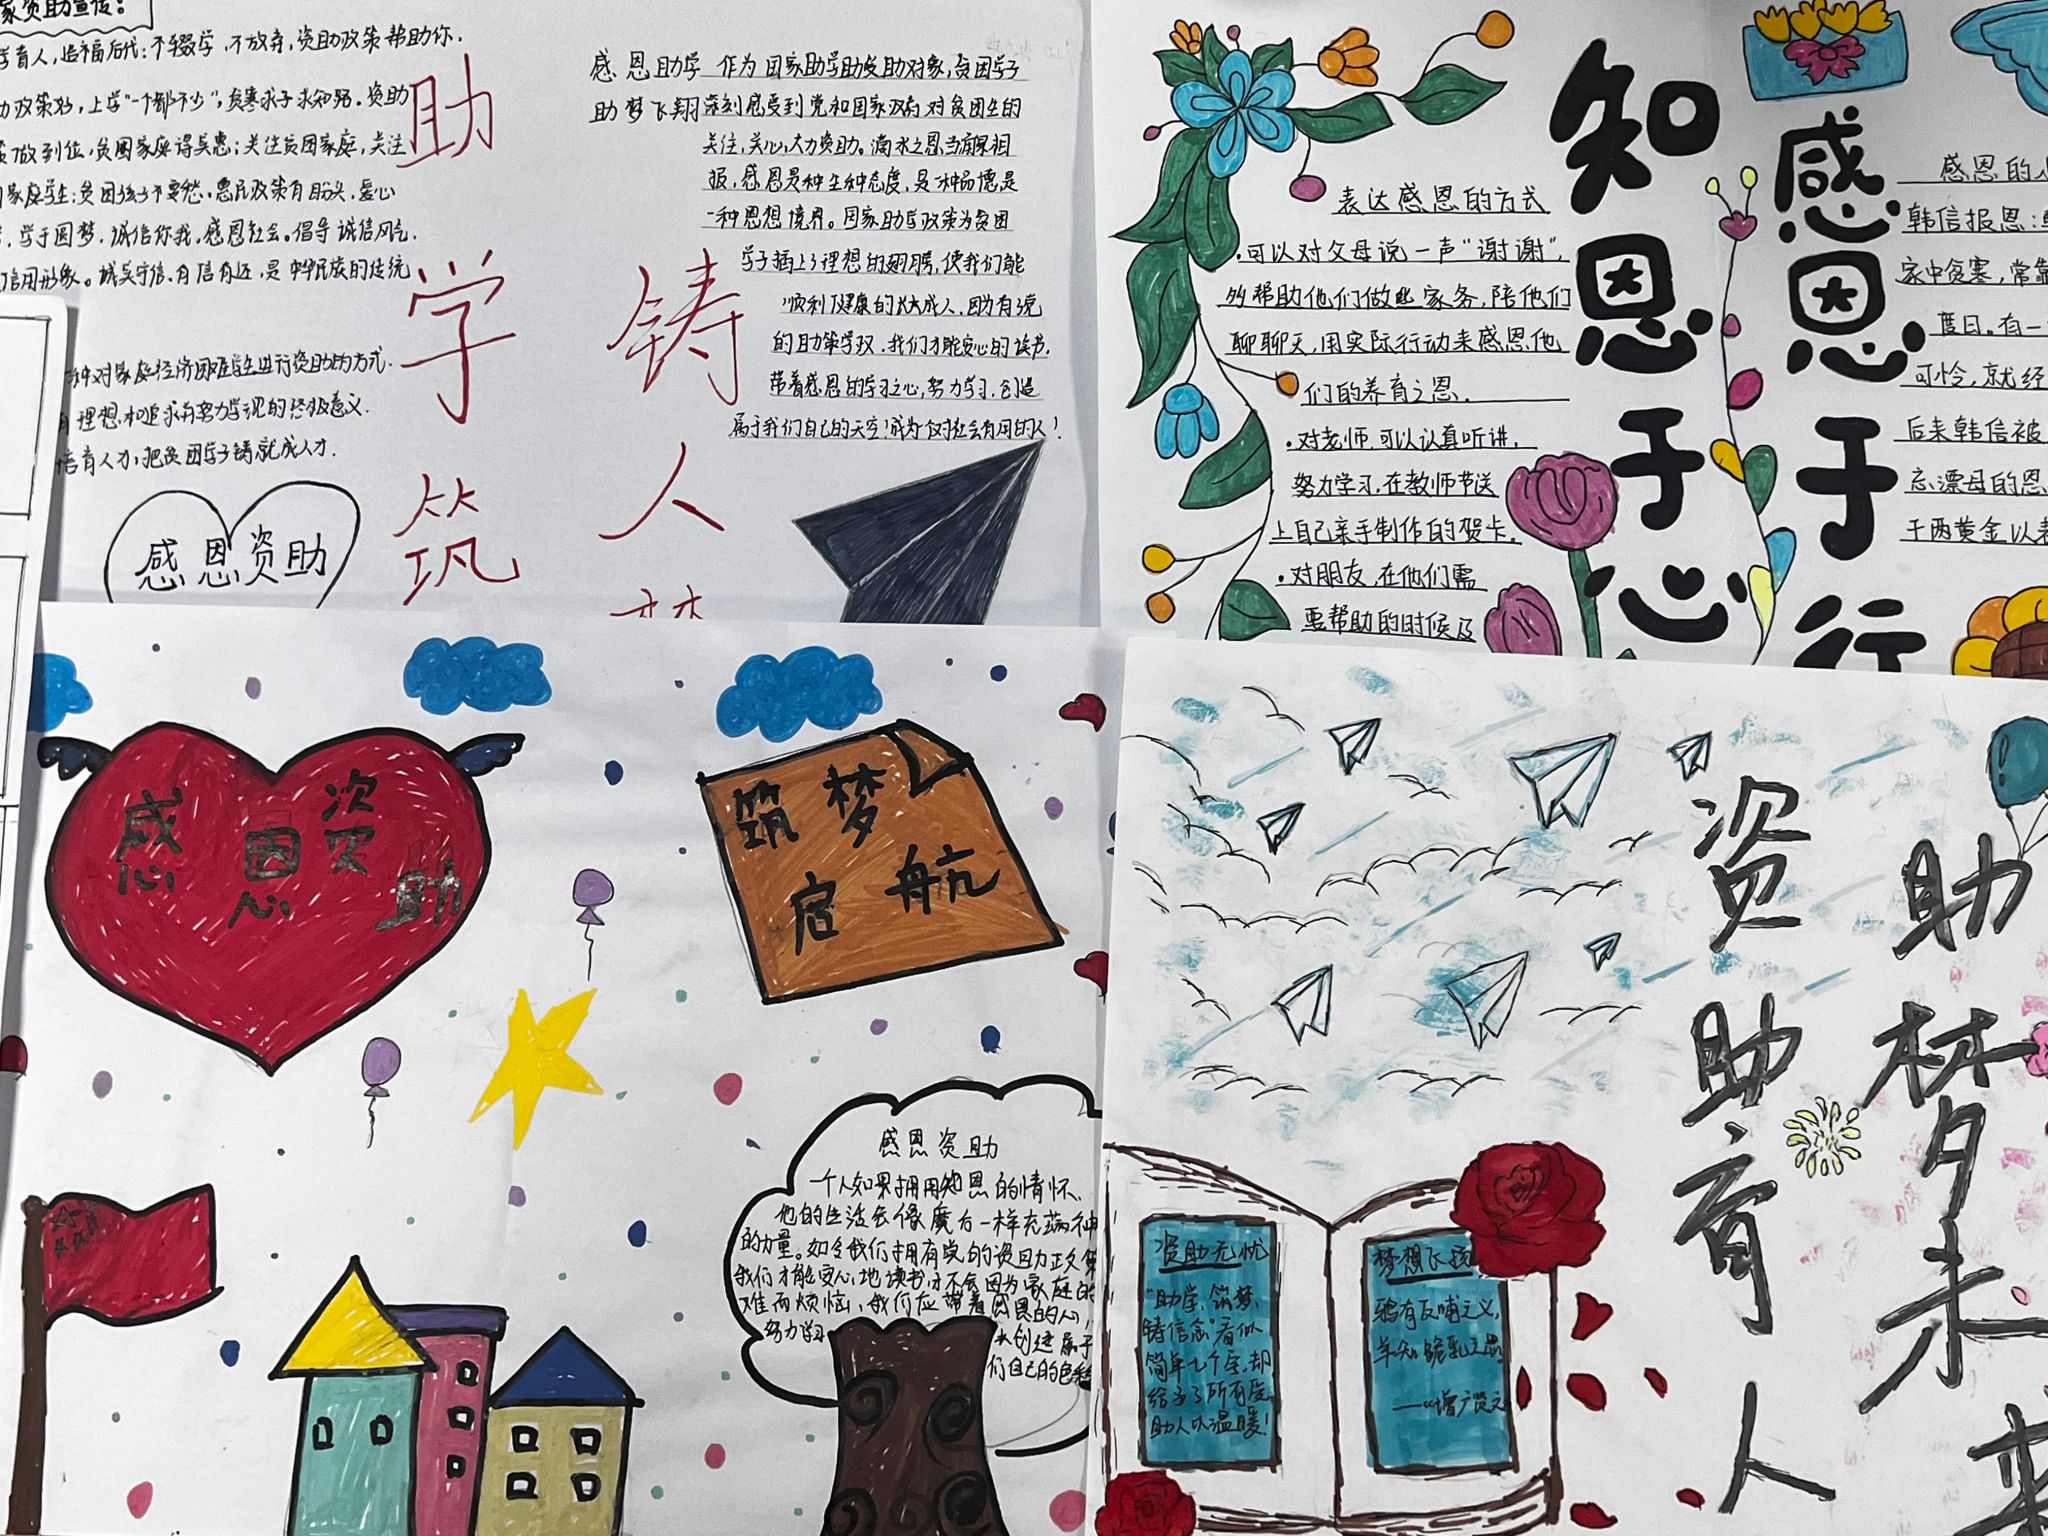 家资助宣传:
学育人,造福后代:不辍学,不放弃,资助政策帮助你.
助政策好,上学“一个都不少”;贫寒求子求知路.资助
策做到位,贫困家庭得实惠;关注贫困家庭,关注
家庭学生:贫困孩子不要愁.惠民政策有盼头,爱心
学子圆梦.诚信你我,感恩社会。倡导诚信风气.
信用形象。诚实守信.有信有还,是中华民族的传统
一种对家庭经济困难学生进行资助的方式.
有理想和追求有努力学说的终极意义.
培育人才,把贫困学子铸就成人才.
感恩资助
助
学
筑
铸
人
梦
感恩助学
助梦飞翔
作为国家助学助受助对象,贫困学子
深刻感受到党和国家政府对贫困生的
关注,关心,大力资助。滴水之恩当涌泉相
报,感恩是种生种态度,是一种品德是
一种思想境界。国家助学政策为贫困
学子插上了理想的翅膀,使我们能
顺利健康的长大成人.因为有了党
的助学政策.我们才能安心的读书.
带着感恩的学习之心,努力学习.创造
属于我们自己的天空!成为个对社会有用的人!
知恩于心
感恩于行
表达感恩的方式
·可以对父母说一声“谢谢”,
多帮助他们做些家务,陪他们
聊聊天,用实际行动来感恩他
们的养育之恩.
·对老师,可以认真听讲,
努力学习,在教师节送
上自己亲手制作的贺卡.
·对朋友,在他们需
要帮助的时候及
感恩的
韩信报恩:
家中贫寒,常靠
度日.有一
可怜,就经
后来韩信被
忘漂母的恩
千两黄金以
感恩资助
筑梦
启航
感恩资助
一个人如果拥用知恩的情怀、
他的生活会像魔方一样充满神
的力量。如今我们拥有党的资助政策
我们才能安心地读书,才不会因为家庭的
难而烦恼,我们应带着感恩的心,
努力学习
来创造属于
们自己的色彩
资助育人
助梦未来
资助无忧
“助学、筑梦、
铸信念”看似
简单七个字,却
给予了所有受
助人以温暖!
梦想飞扬
鸦有反哺之义,
羊知跪乳之恩
——《增广贤文